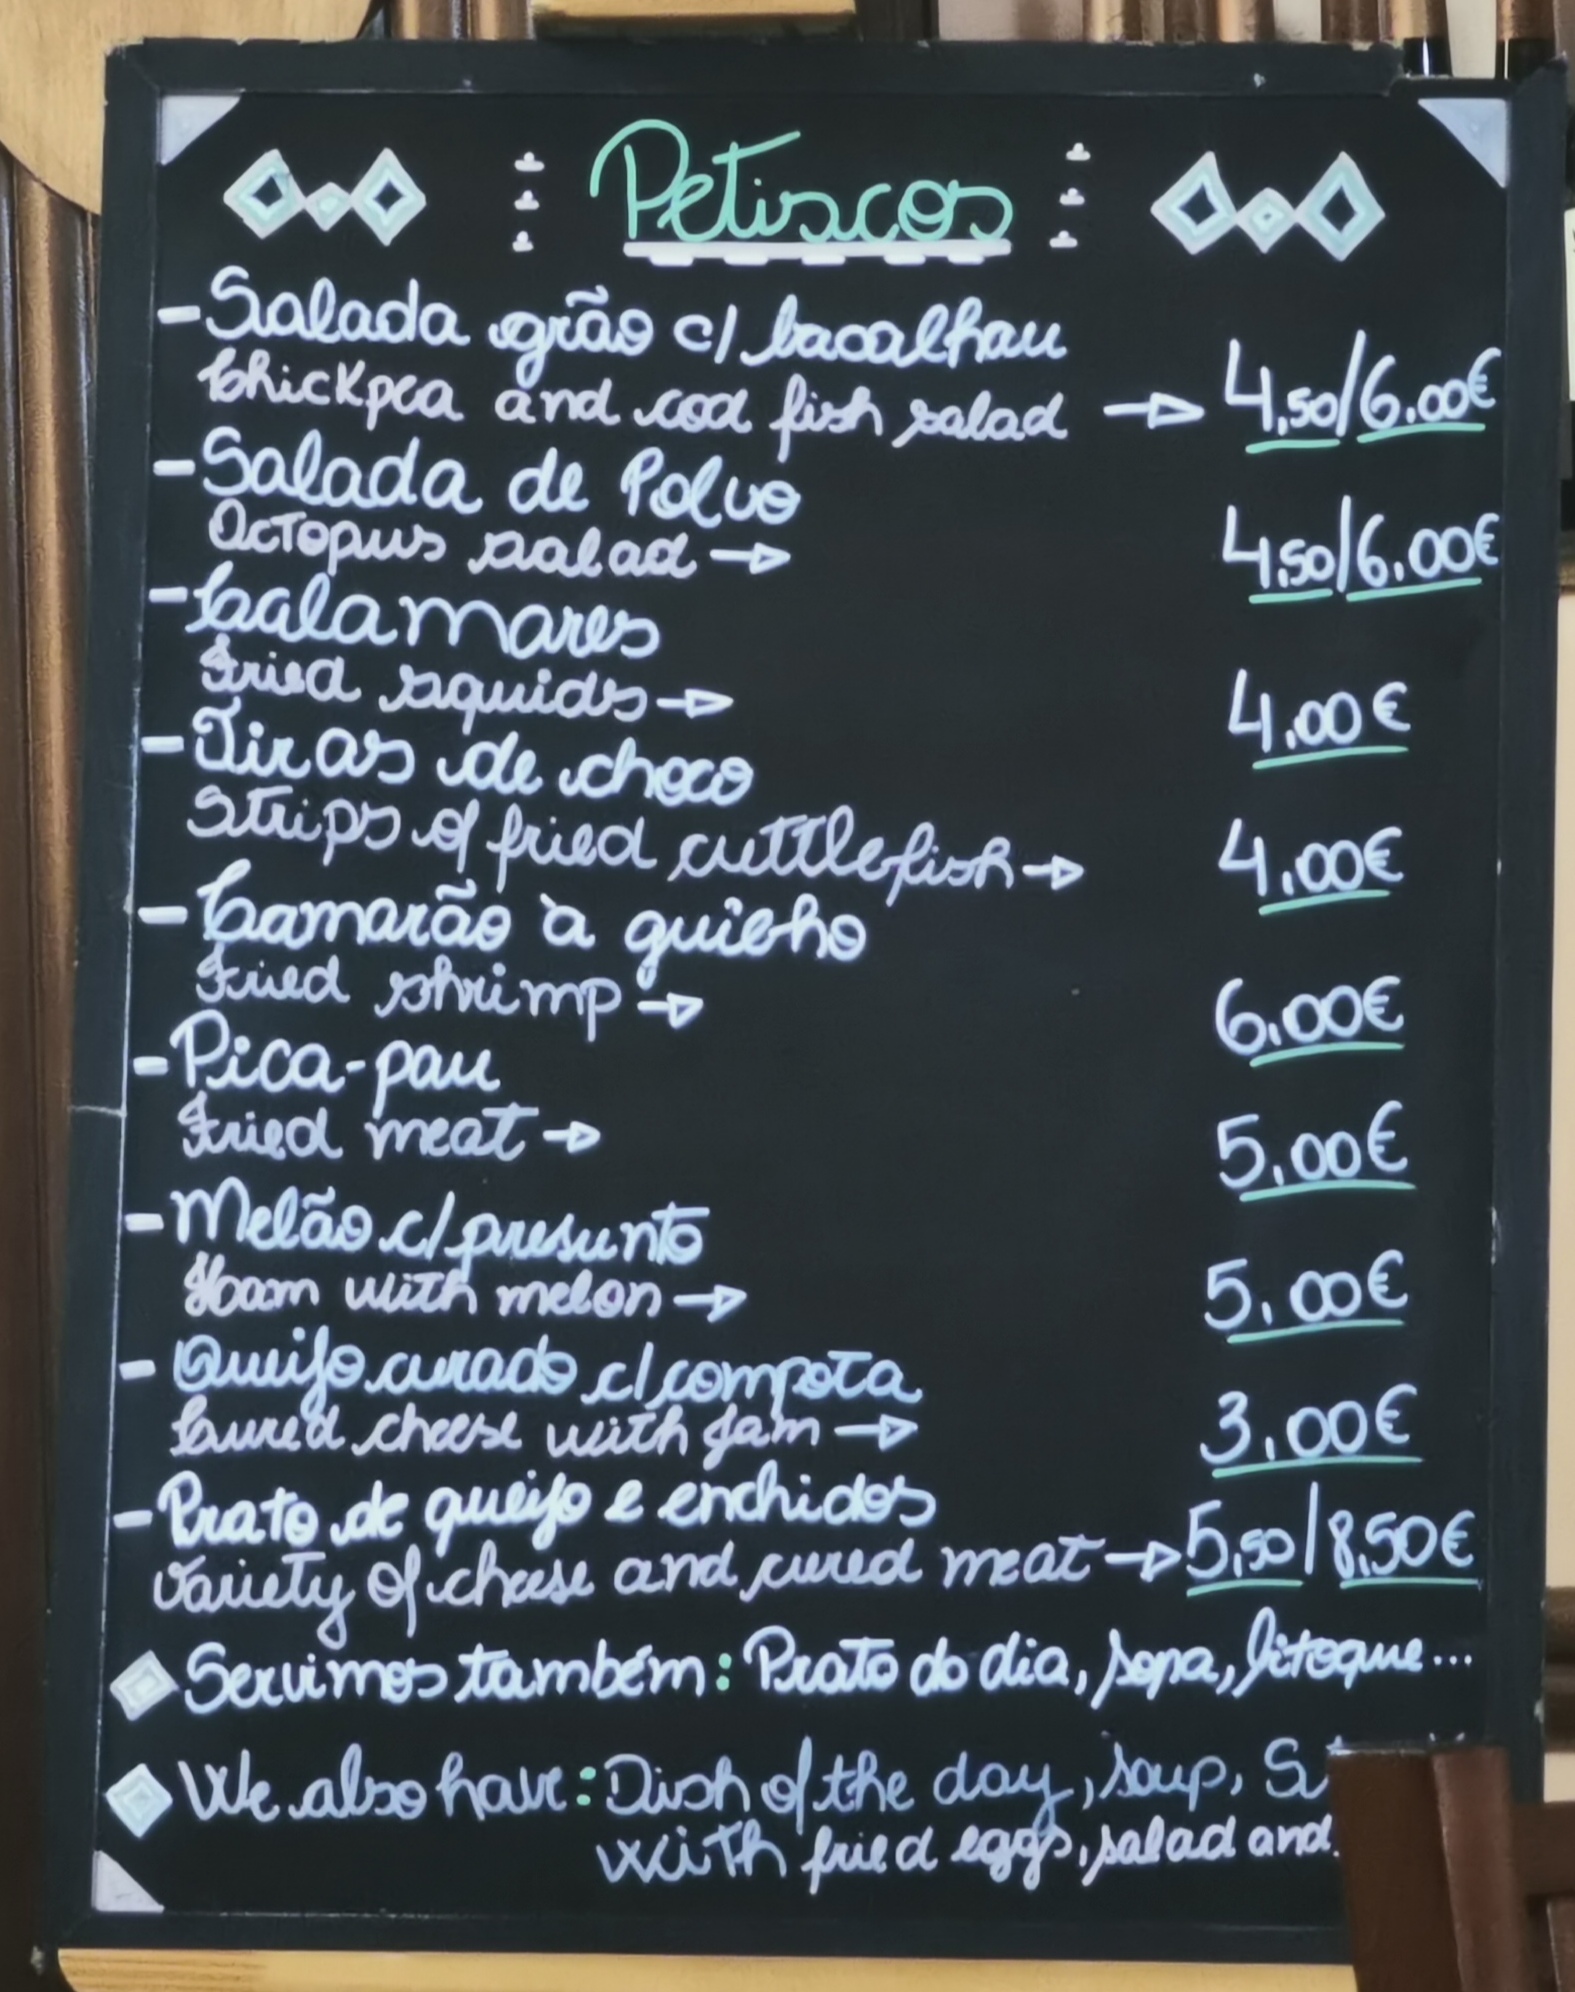 Petiscos
- Salada grão c/ bacalhau
Chickpea and cod fish salad → 4,50/6,00€
- Salada de Polvo
Octopus salad → 4,50/6,00€
- Calamares
Fried squids → 4,00€
- Tiras de choco
Strips of fried cuttlefish → 4,00€
- Camarão à guilho
Fried shrimp → 6,00€
- Pica-pau
Fried meat → 5,00€
- Melão c/ presunto
Ham with melon → 5,00€
- Queijo curado c/ compota
Cured cheese with jam → 3,00€
- Prato de queijo e enchidos
Variety of cheese and cured meat → 5,50/8,50€
Servimos também: Prato do dia, sopa, bitoque...
We also have: Dish of the day, soup,
with fried eggs, salad and